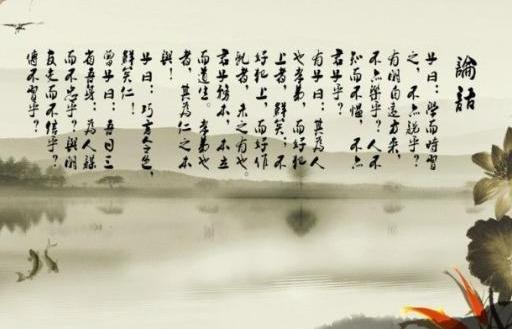 論語
子曰：學而時習
之，不亦說乎？
有朋自遠方來，
不亦樂乎？人不
知而不慍，不亦
君子乎？
有子曰：其為人
也孝弟，而好犯
上者，鮮矣；不
好犯上，而好作
亂者，未之有也。
君子務本，本立
而道生。孝弟也
者，其為仁之本
與！
子曰：巧言令色，
鮮矣仁！
曾子曰：吾日三
省吾身：為人謀
而不忠乎？與朋
友交而不信乎？
傳不習乎？